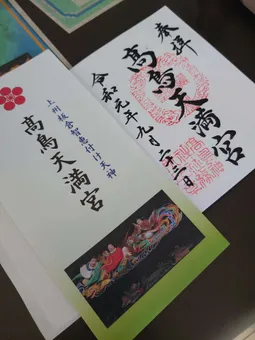 奉拝
高鳥天満宮
令和元年九月二十三日
上州板倉智恵付け天神
高鳥天満宮